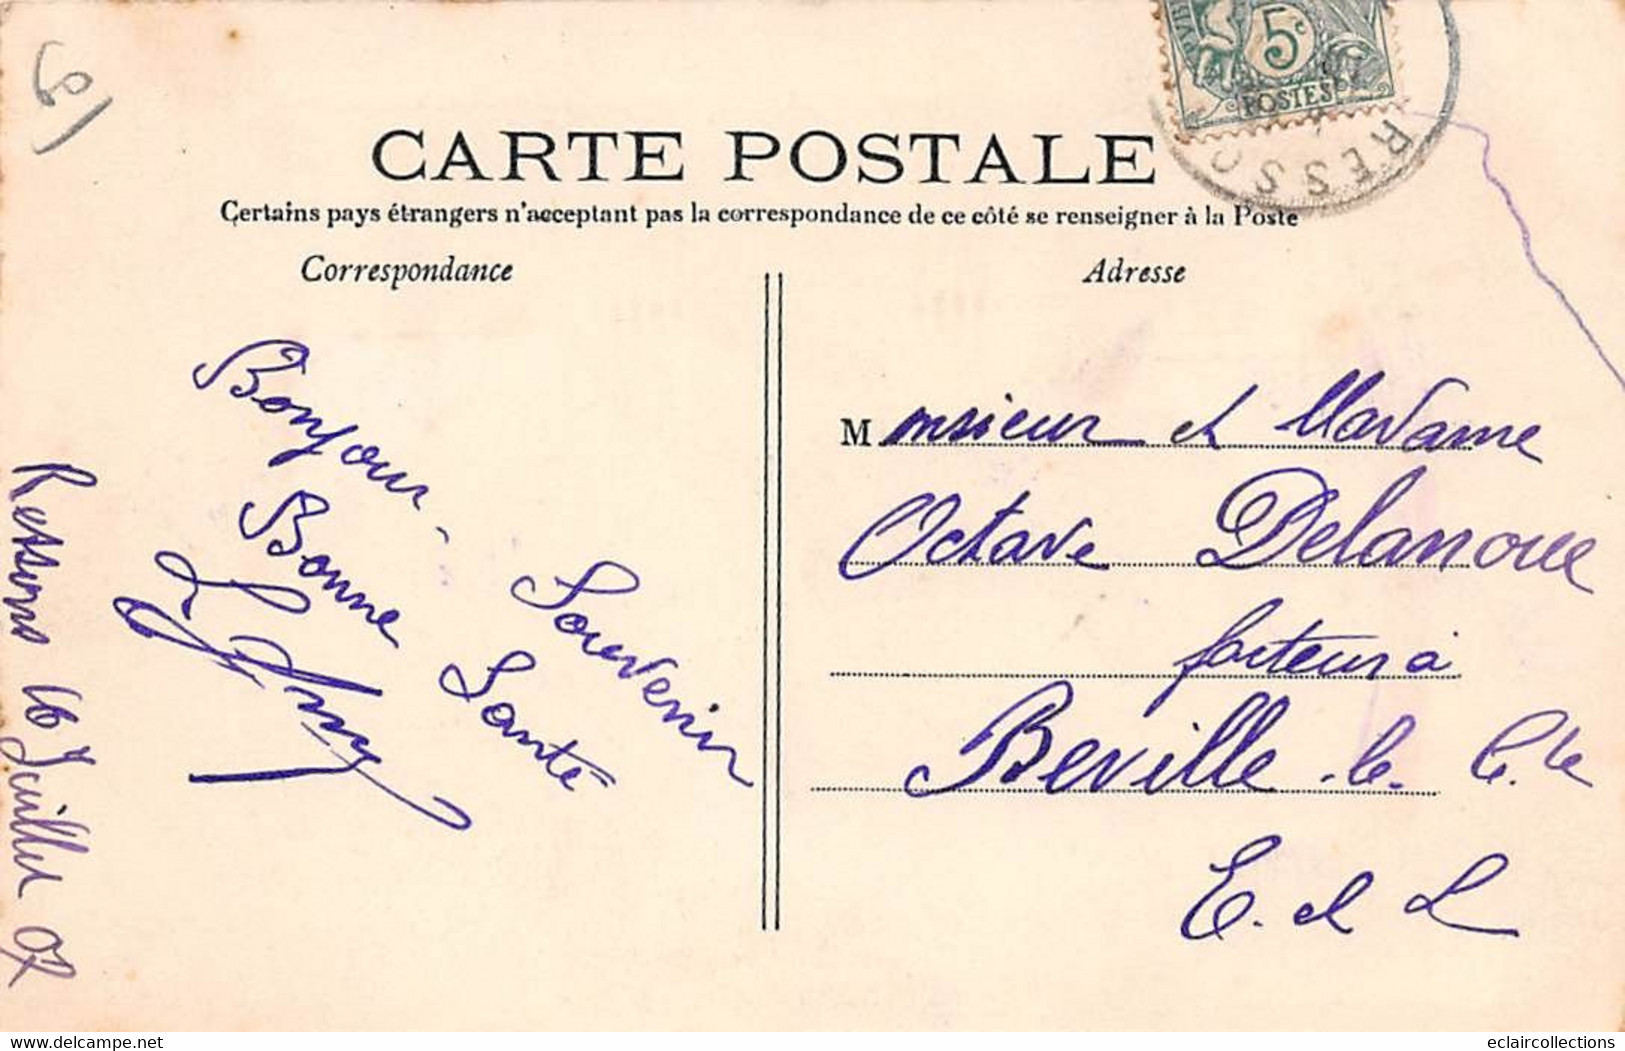 5c
POSTES
RESSO
CARTE POSTALE
Certains pays étrangers n'acceptant pas la correspondance de ce côté se renseigner à la Poste
Correspondance
Bonjour - Souvenir
Bonne Santé
Ressons 16 Juillet 07
Adresse
Monsieur et Madame
Octave Delanoue
facteur à
Beville-le-C.te
E. et L
www.delcampe.net
eclaircollections